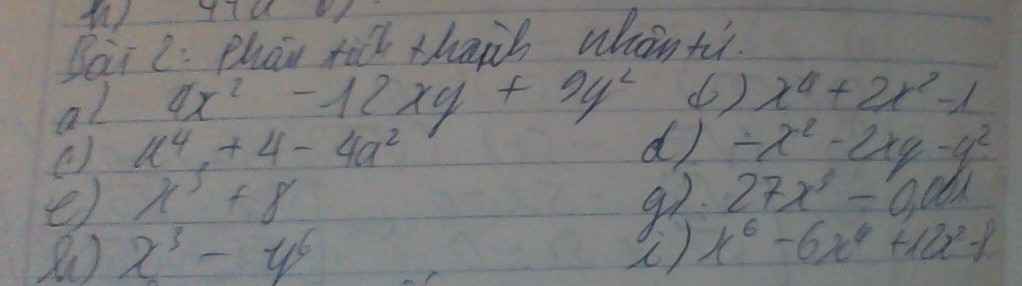 h)
Bài 2: Phân tích thành nhân tử.
a) 4x² - 12xy + 9y² b) x⁴ + 2x² - 1
c) a⁴ + 4 - 4a² d) -x² - 2xy - y²
e) x³ + 8 g) 27x³ - 0,001
h) x³ - y⁶ i) x⁶ - 6x⁴ + 12x² - 8